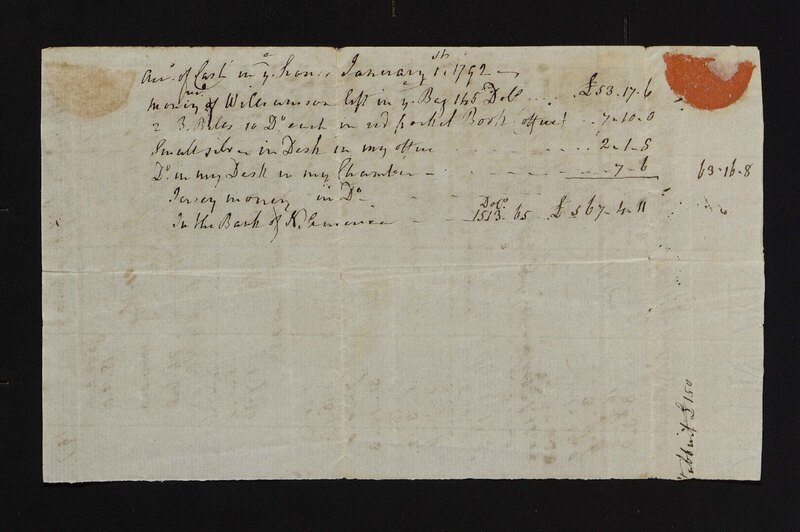 Acc.t of Cash in y.e house January 1.st 1792
money rec.d of Williamson left in y.e Bag 145 Dol.s £53.17.6
2 B. Bills 10 D.o each in red pocket Book (office) 7-10-0
Small silver in Desk in my office 2-1-8
D.o in my Desk in my Chamber 7-6 63-16-8
Jersey money in D.o
In the Bank of N. America Dol.s 1513.65 £567-4-11
£150